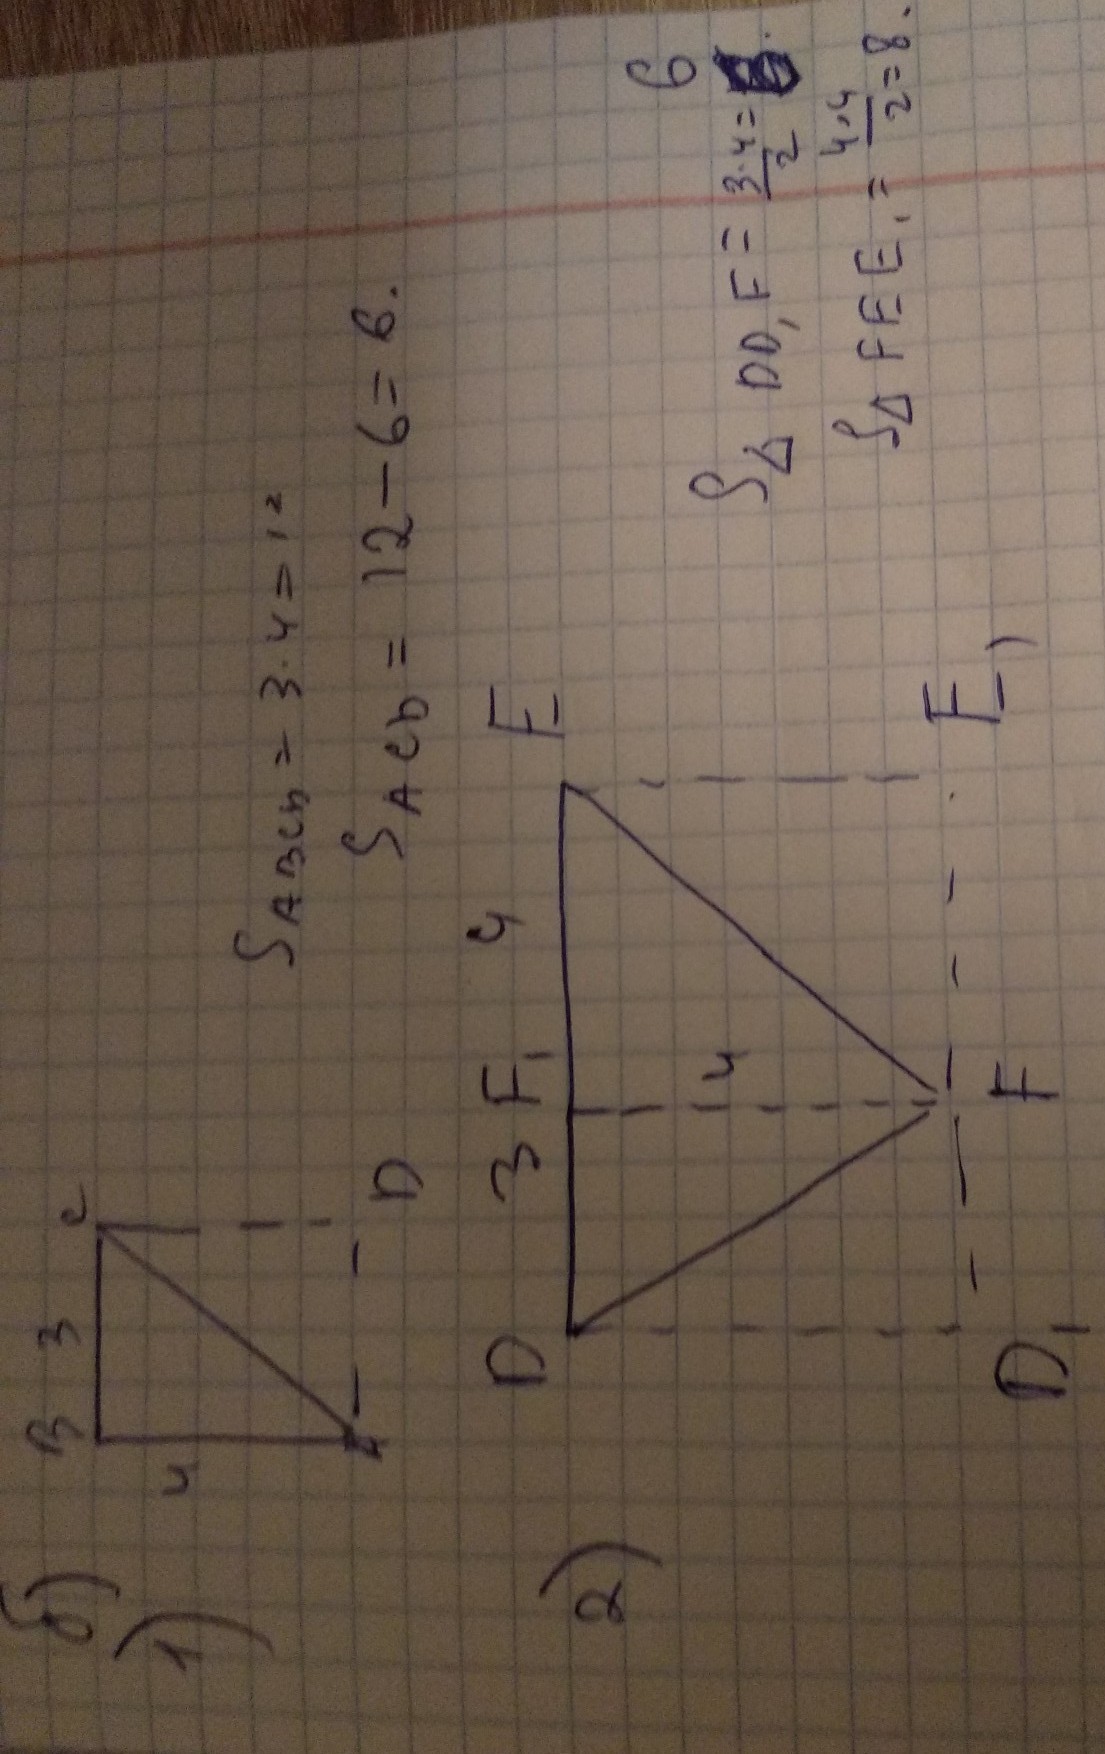 б)
1)
B 3 C
4
A D
S ABCD = 3·4=12
S ACD = 12-6=6.
2)
D 3 F₁ 4 E
4
D₁ F E₁
S△ DD₁F = 3·4/2 = 6
S△ FEE₁ = 4·4/2=8.